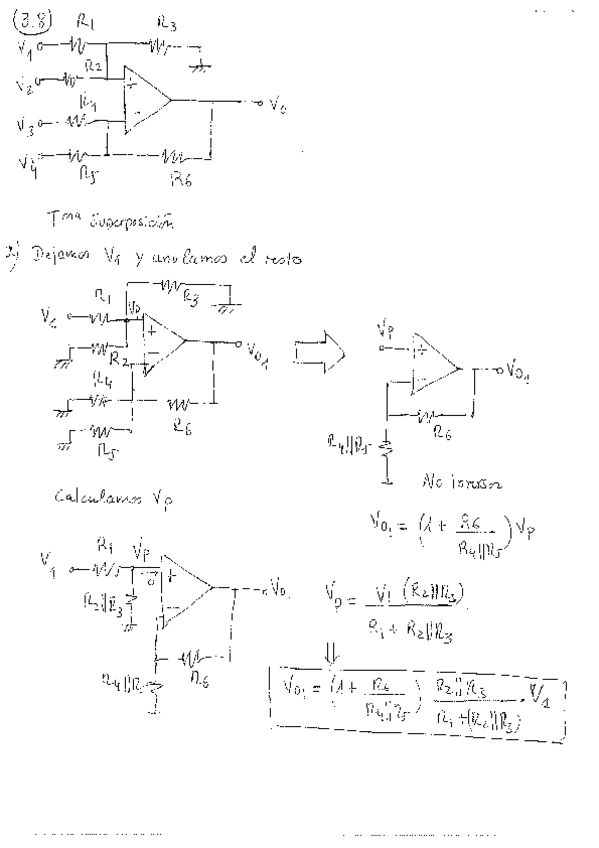 (3.8)
R1 R3
V1
R2
V2 +
R4
V3 - V0
V4
R5 R6
Tma Superposición
a) Dejamos V1 y anulamos el resto
R1 R3
VP
+
R2 - V01
R4
R6
R5
VP + V01
-
R6
R4||R5
No inversor
V01 = (1 + R6 / R4||R5) VP
Calculamos VP
R1 VP
V1 +
R2||R3 - V0
R6
R4||R5
VP = V1 (R2||R3) / R1 + R2||R3
⇓
V01 = (1 + R6 / R4||R5) R2||R3 / R1 + (R2||R3) · V1